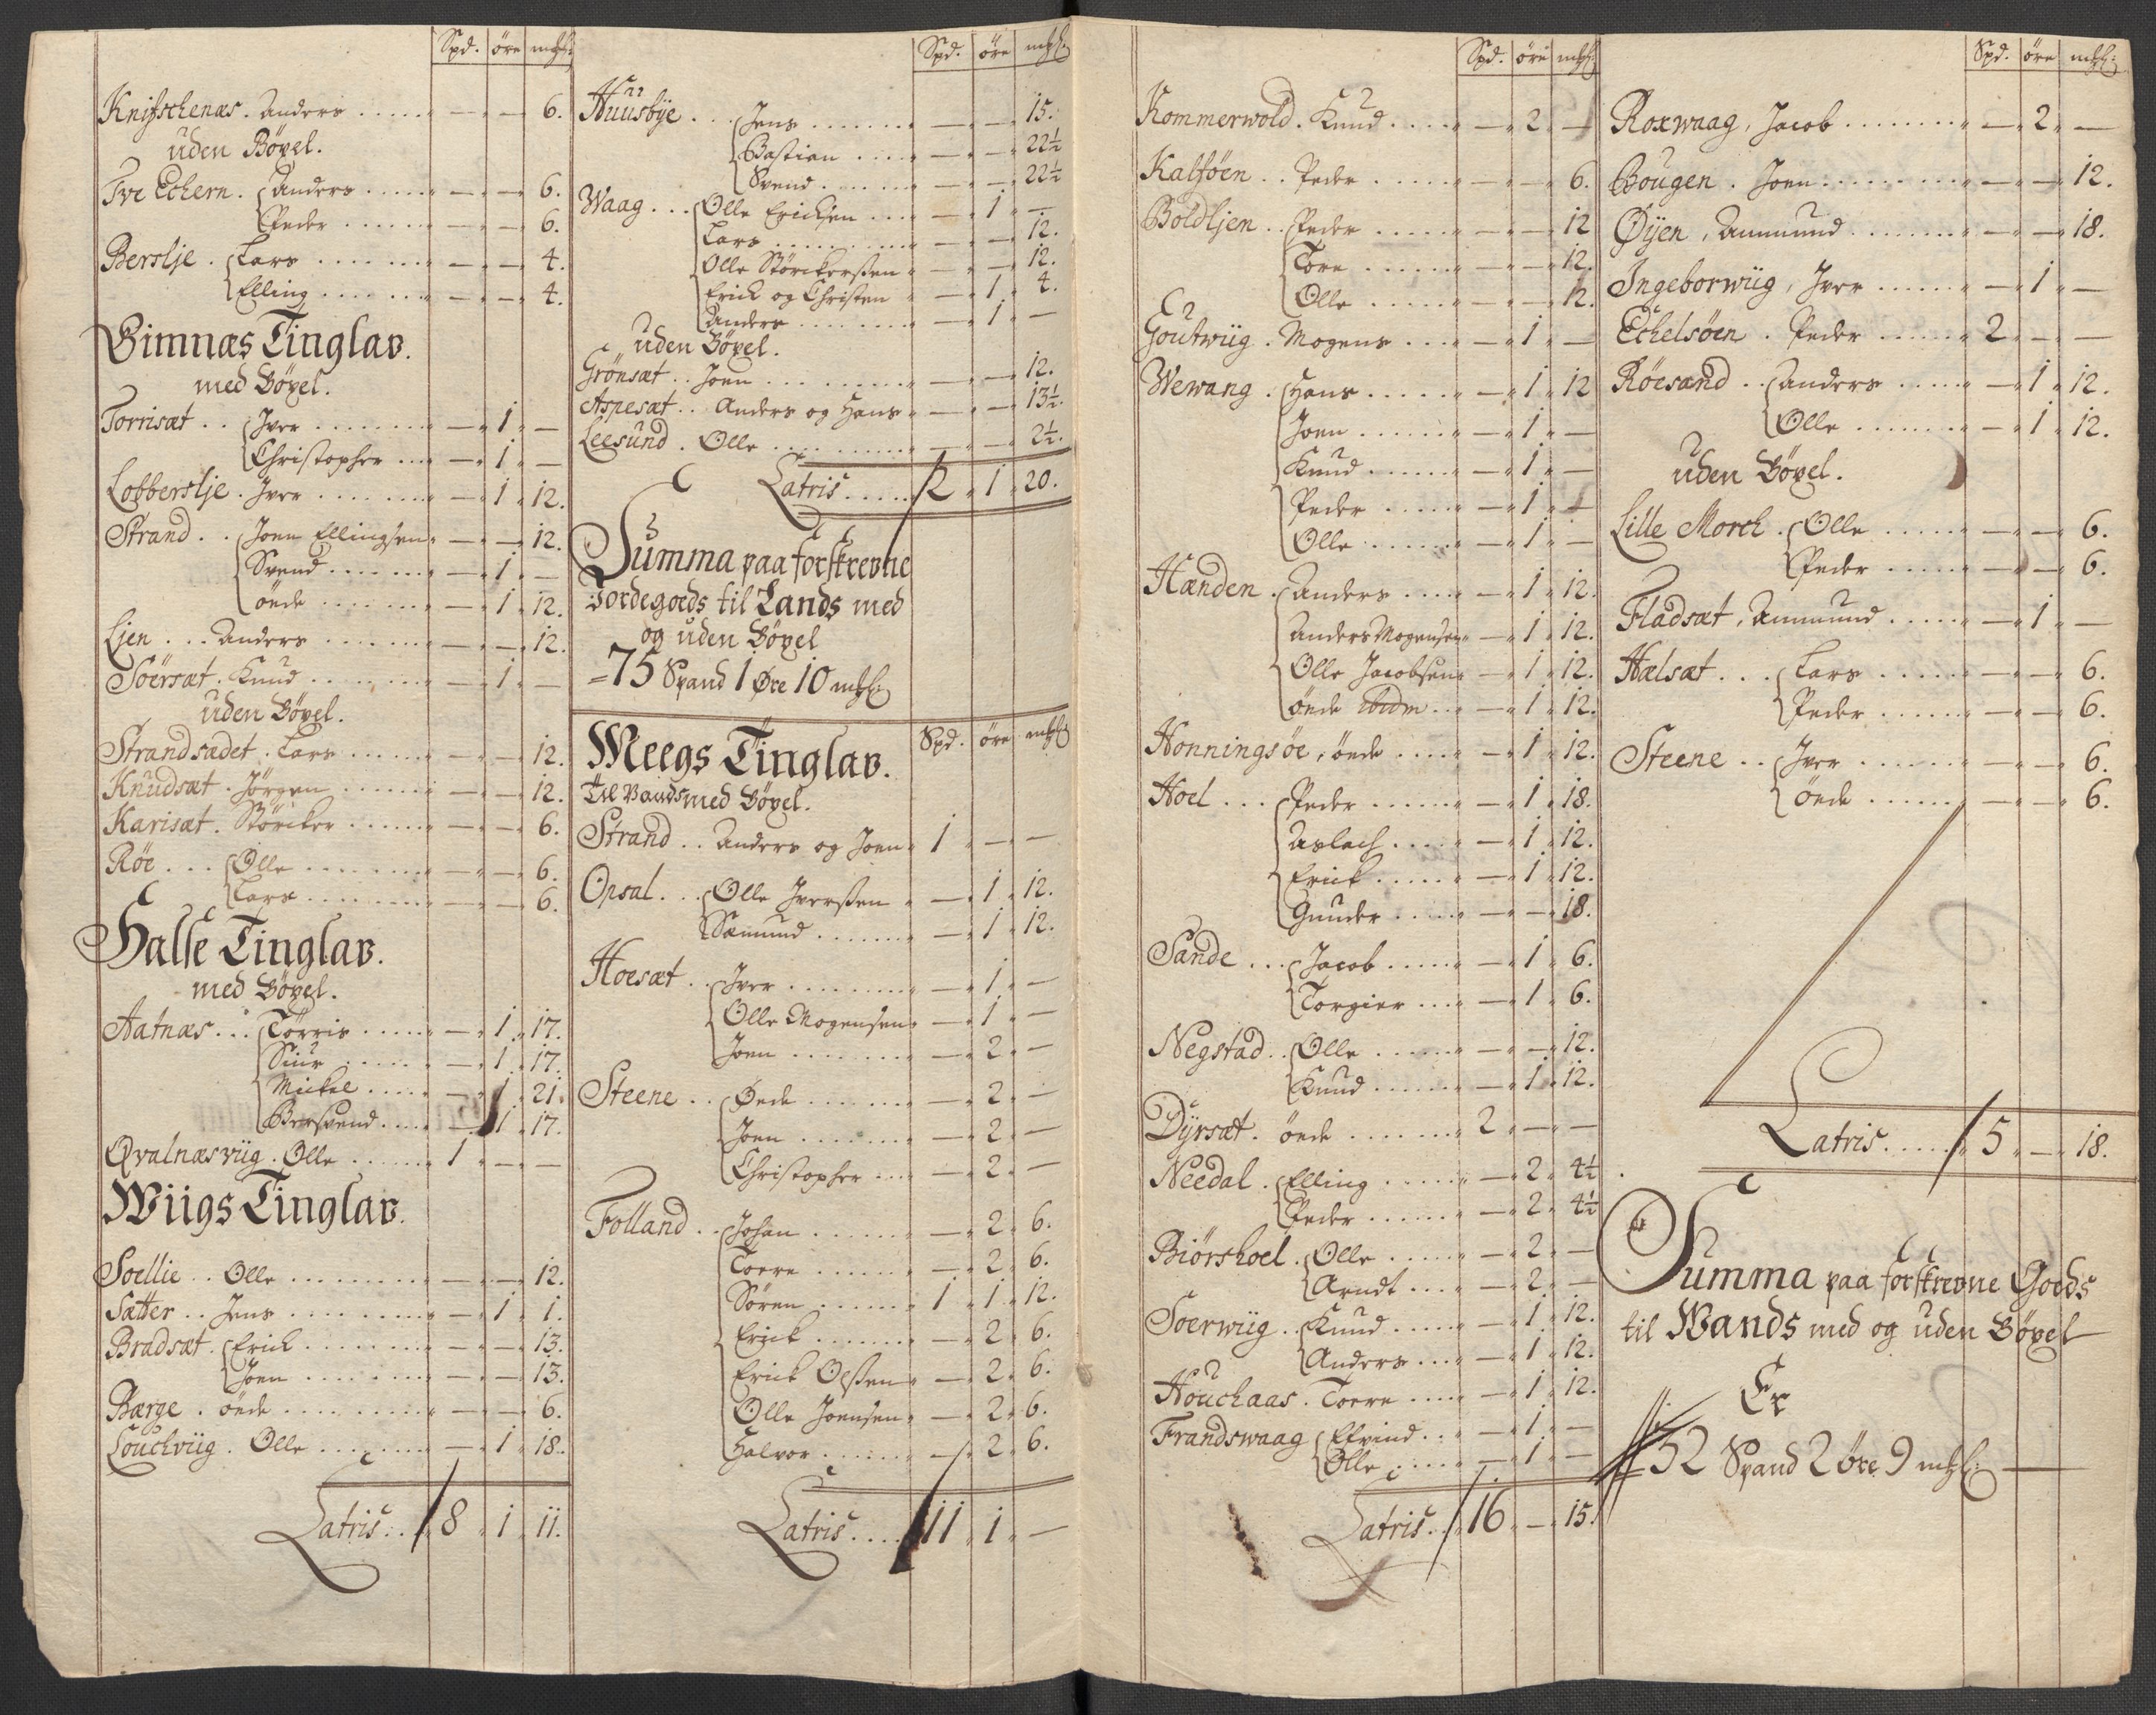 Spd. öre mkl:
Knifschenæs. Anders ..... — — 6.
uden Böxel.
Tre Echern. Anders ..... — — 6.
Peder ..... — — 6.
Berslje. Lars ..... — — 4.
Elling ..... — — 4.
Gimnæs Tinglav.
med Böxel.
Torrisæt .. Iver ..... — 1. —
Christopher ... — 1. —
Lobberslje. Iver ..... — 1. 12.
Strand .. Joen Ellingsen. — — 12.
Svend ..... — 1. —
öede ..... — 1. 12.
Ljen ... Anders ..... — — 12.
Söersæt. Knud ..... — 1. —
uden Böxel.
Strandsædet. Lars ..... — — 12.
Knudsæt. Jörgen ..... — — 12.
Karisæt. Störcker ..... — — 6.
Röe ... Olle ..... — — 6.
Lars ..... — — 6.
Halse Tinglav.
med Böxel.
Aatnæs ... Törris ..... — 1. 17.
Siur ..... — 1. 17.
Mickel ..... — 1. 21.
Bersvend ..... — 1. 17.
Qvalnæsviig. Olle ..... 1. — —
Wiigs Tinglav.
Soellie .. Olle ..... — — 12.
Sætter .. Jens ..... — 1. 1.
Bradsæt. Erick ..... — — 13.
Joen ..... — — 13.
Bærge. öede ..... — — 6.
Louchviig. Olle ..... — 1. 18.
Latris ... 8. 1. 11.
Spd. öre mkl:
Huusbye ... Jens ..... — — 15.
Bastian ..... — — 22½
Svend ..... — — 22½
Waag ... Olle Ericksen ... — 1. —
Lars ..... — — 12.
Olle Störckersen — — 12.
Erick og Christen — 1. 4.
Anders ..... — 1. —
uden Böxel.
Grönsæt .. Joen ..... — — 12.
Aspesæt .. Anders og Hans — — 13½.
Leesund. Olle ..... — — 2½.
Latris ..... 2. 1. 20.
Summa paa forskrevne
Jordegoeds til Lands med
og uden Böxel
= 75 Spand 1 Öre 10 mkl:
Meegs Tinglav. Spd. öre mkl:
Til Vands med Böxel.
Strand .. Anders og Joen. 1 — —
Opsal ... Olle Iversen — 1. 12.
Sæmund ..... — 1. 12.
Hoesæt .. Iver ..... — 1. —
Olle Mogensen — 1. —
Joen ..... — 2. —
Steene .. Öede ..... — 2. —
Joen ..... — 2. —
Christopher ... — 2. —
Folland .. Johan ..... — 2. 6.
Toere ..... — 2. 6.
Sören ..... 1. 1. 12.
Erick ..... — 2. 6.
Erick Olsen — 2. 6.
Olle Joensen — 2. 6.
Halvor ..... — 2. 6.
Latris .... 11. 1. —
Spd. öre mkl:
Kommerwold. Knud ..... — 2. —
Kalföen .. Peder ..... — — 6.
Boldljen .. Peder ..... — — 12
Tore ..... — — 12.
Olle ..... — — 12.
Goutwiig. Mogens ... — 1. —
Wewang. Hans ..... — 1. 12
Joen ..... — 1. —
Knud ..... — 1. —
Peder ..... — 1. —
Olle ..... — 1. —
Hænden. Anders ..... — 1. 12.
Anders Mogensen — 1. 12.
Olle Jacobsen — 1. 12.
öede ibidm .. — 1. 12.
Honningsöe, öede .... — 1. 12.
Hoel ... Peder ..... — 1. 18.
Aslach ..... — 1. 12.
Erick ..... — 1. 12.
Gunder ..... — — 18.
Sande ... Jacob ..... — 1. 6.
Torgier ... — 1. 6.
Negstad .. Olle ..... — — 12.
Knud ..... — 1. 12.
Dyrsæt. öede ..... 2. — —
Needal. Elling ..... — 2. 4½
Peder ..... — 2. 4½
Biörshoel. Olle ..... — 2. —
Arndt ... — 2. —
Soerwiig .. Knud ..... — 1. 12.
Anders ... — 1. 12.
Houchaas. Toere .... — 1. 12.
Frandswaag Efvind .. — 1. —
Olle ..... — 1. —
Latris .. 16. — 15.
Spd. öre mkl:
Roxwaag, Jacob ..... — 2. —
Bougen. Joen ..... — — 12.
Öyen, Anmund ..... — — 18.
Ingeborwiig, Iver ..... — 1. —
Echelsöen. Peder ..... 2. — —
Röesand .. Anders ..... — 1. 12.
Olle ..... — 1. 12.
uden Böxel.
Lille Morch. Olle ..... — — 6.
Peder ..... — — 6.
Fladsæt, Anmund ..... — 1. —
Hælsæt ... Lars ..... — — 6.
Peder ..... — — 6.
Steene .. Iver ..... — — 6.
öede ..... — — 6.
Latris ..... 5. — 18.
Summa paa forskrevne Goeds
til Wands med og uden Böxel
Er
32 Spand 2 öre 9 mkl: —